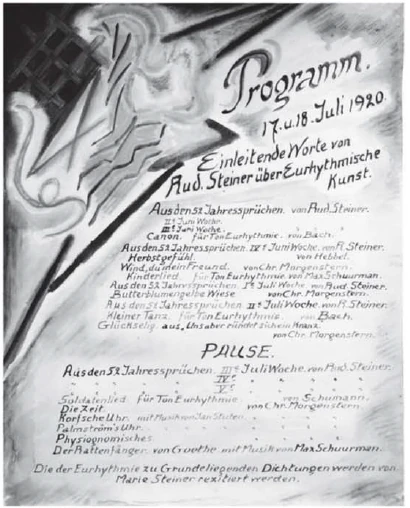 Programm.
17. u. 18. Juli 1920.
Einleitende Worte von
Rud. Steiner über Eurhythmische
Kunst.
Aus den 52 Jahressprüchen. von Rud. Steiner.
IIte Juni Woche.
IIIte Juni Woche.
Canon. für Ton Eurhythmie. von Bach.
Aus den 52 Jahressprüchen. IVte Juni Woche. von R. Steiner.
Herbstgefühl. von Hebbel.
Wind, du mein Freund. von Chr. Morgenstern.
Kinderlied. für Ton Eurhythmie. von Max Schuurman.
Aus den 52 Jahressprüchen. Ite Juli Woche. von Rud. Steiner.
Butterblumengelbe Wiese von Chr. Morgenstern.
Aus den 52 Jahressprüchen IIte Juli Woche. von R. Steiner.
Kleiner Tanz. für Ton Eurhythmie. von Bach.
Glückselig. aus, Uns aber ründet sich ein Kranz.
von Chr. Morgenstern.
PAUSE.
Aus den 52 Jahressprüchen. IIIte Juli Woche. von Rud. Steiner.
" " " IVte " " " " "
" " " Vte " " " " "
Soldatenlied für Ton Eurhythmie. von Schumann.
Die Zeit. von Chr. Morgenstern.
Korfsche Uhr. mit Musik von Jan Stuten. " " "
Palmström's Uhr. " " "
Physiognomisches " " "
Der Rattenfänger. von Goethe mit Musik von Max Schuurman.
Die der Eurhythmie zu Grundeliegenden Dichtungen werden von
Marie Steiner rezitiert werden.